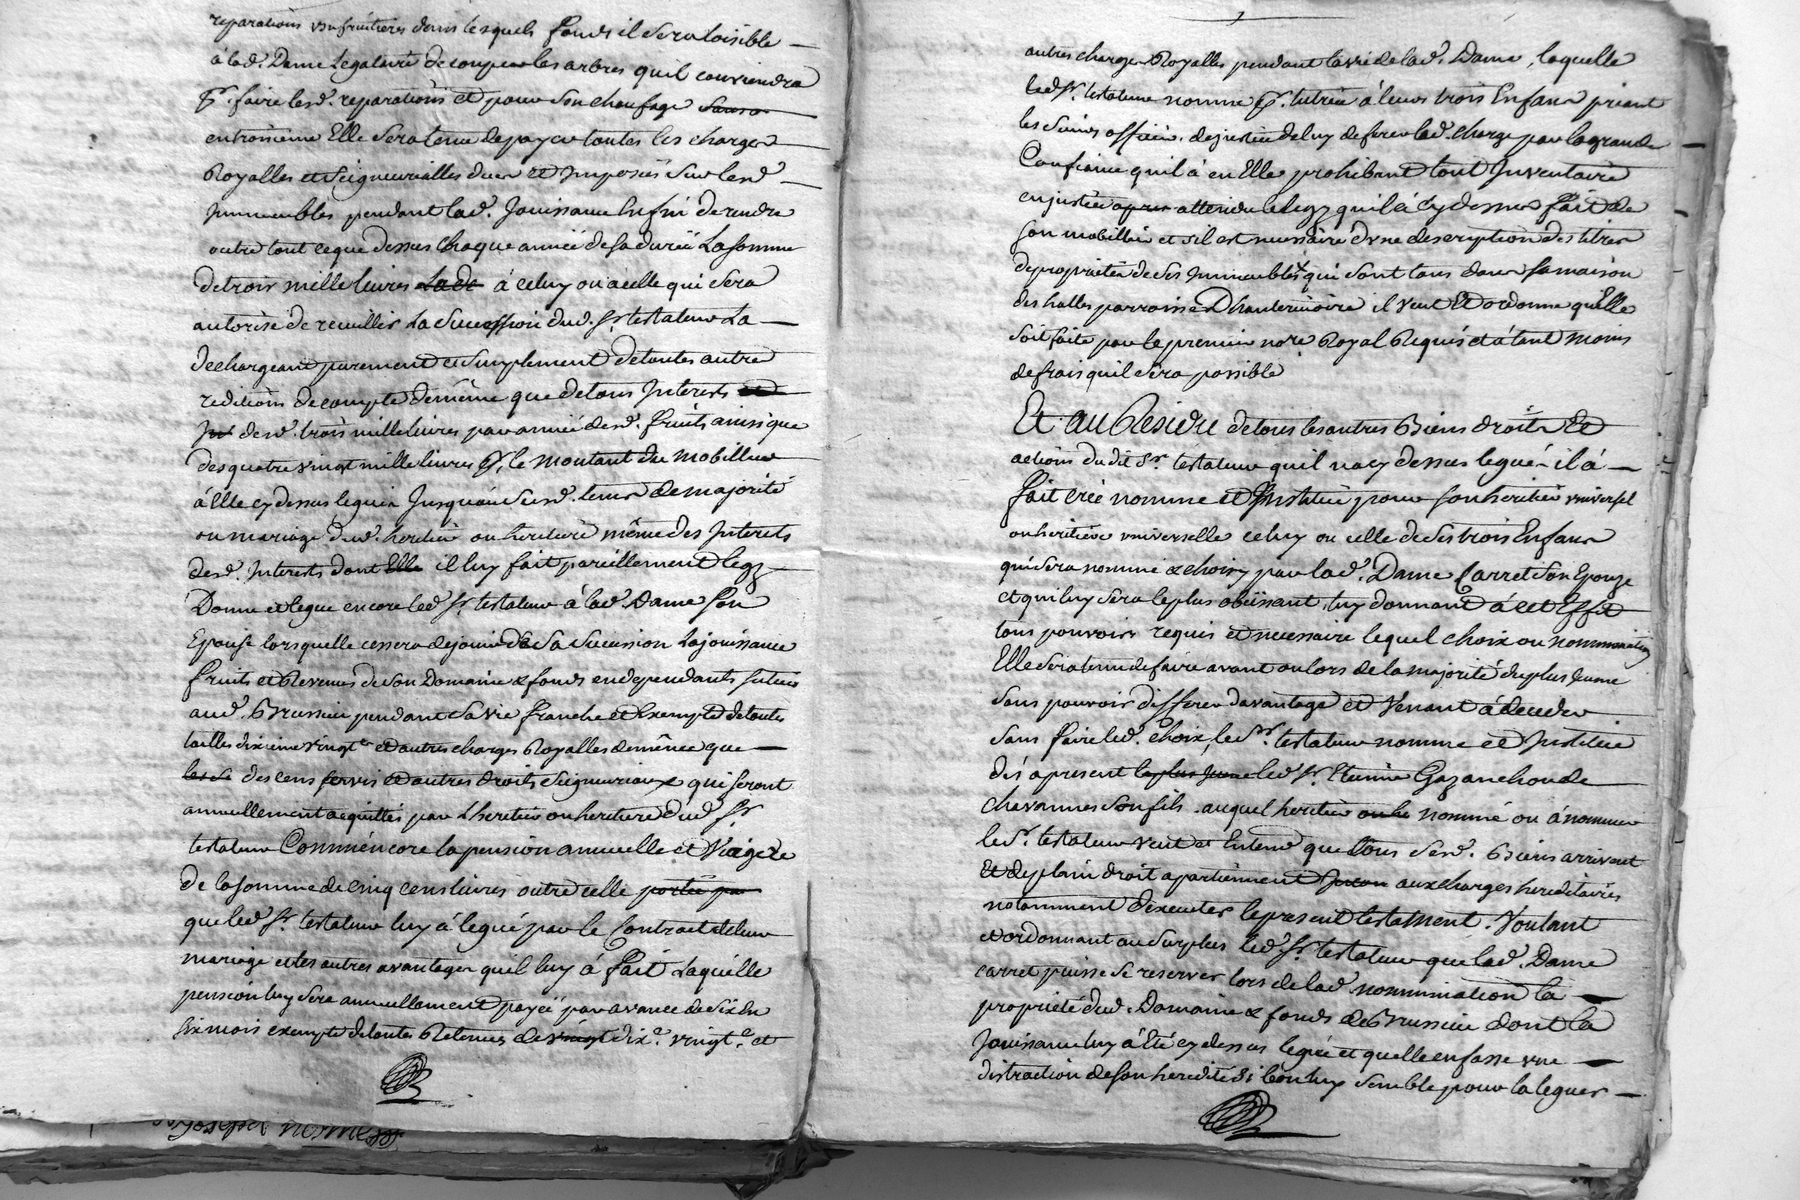 reparations usufruitieres dans lesquels fonds il sera loisible
à lad. Dame Legataire de couper les arbres qu'il conviendra
pr. faire lesd. reparations et pour son chaufage sans
en troisieme Elle sera tenue de payer toutes les charges
Royalles et Seigneurialles dues et Imposées sur lesd
Immeubles pendant lad. Jouissance Enfin de rendre
outre tout ce que dessus chaque année de sa durée La somme
de trois mille livres La de à celuy ou à celle qui sera
autorisé de receuillir La Succession dud. Sr. testateur La
dechargeant purement et simplement de toutes autre
reditions de compte de même que de tous Interests et
desd. trois mille livres par année desd. fruits ainsi que
des quatre vingt mille livres pr. le montant du mobillier
à Elle cy dessus legué Jusqu'au tems de majorité
ou mariage dud. heritier ou heritiere même des Interets
desd. Interets dont Elle il luy fait pareillement legz
Donne et legue encore led Sr. testateur à lad. Dame Son
Epouse lorsquelle cessera de jouir de sa sucession La jouissance
fruits et Revenus de son Domaine & fonds en dependants situés
aud. Brussieu pendant sa vie franche et Exempte de toutes
tailles dixieme vingte et autres charges Royalles de même que
les de des cens servis et autres droits Seigneuriaux qui seront
annuellement acquittés par L'heritier ou heritiere dud Sr
testateur Comme encore la pension annuelle et Viagere
de la somme de cinq cens livres outre celle portée par
que led Sr. testateur luy à legué par le Contract de leur
mariage et les autres avantages qu'il luy à fait Laquelle
pension luy sera annuellement payée par avance de six en
six mois exempte de toutes Retenues de vingt dixe. vingte. et
Joseph
autres charges Royalles pendant la vie de lad. Dame, laquelle
led Sr. testateur nomme pr. tutrice à leurs trois Enfans priant
les Sieurs officiers de justice de luy deferer lad. charge par la grande
Confiance qu'il à en Elle prohibant tout Inventaire
en justice apres attendu le legz qu'il à cy dessus fait de
son mobillier et s'il est necessaire d'une description des titres
de proprieté de ses Immeubles qui sont tous dans sa maison
des halles parroisse D'hauterivoire il veut Et ordonne qu'Elle
soit faite par le premier nore. Royal Requis et à tant moins
de frais qu'il sera possible
Et au Residu de tous les autres Biens droits Et
actions dudit Sr. testateur qu'il n'a cy dessus legué il à
fait créé nommé et Institué pour son heritier universel
ou heritiere universelle celuy ou celle de ses trois Enfans
qui sera nommé & choisy par lad. Dame Carret son Epouze
et qui luy sera le plus obeissant, luy donnant à cet Effet
tous pouvoirs requis et necessaire lequel choix ou nommination
Elle sera tenue de faire avant ou lors de la majorité du plus Jeune
sans pouvoir differer davantage et Venant à deceder
sans faire led. choix, led Sr. testateur nomme et Institue
dés apresent le plus Jeune led Sr. Etienne Gazanchon de
chavannes son fils auquel heritier ou he nommé ou à nommer
led Sr. testateur veut et Entend que tous sesd. Biens arrivent
Et de plain droit apartiennent aux charges hereditaires
notamment d'executer le present testament. Voulant
et ordonnant au surplus led Sr. testateur que lad. Dame
carret puisse se reserver lors de lad nommination la
proprieté dud. Domaine & fonds de Brussieu dont la
Jouissance luy à Eté cy dessus leguée et quelle en fasse une
distraction de son heredité si bon luy semble pour la leguer